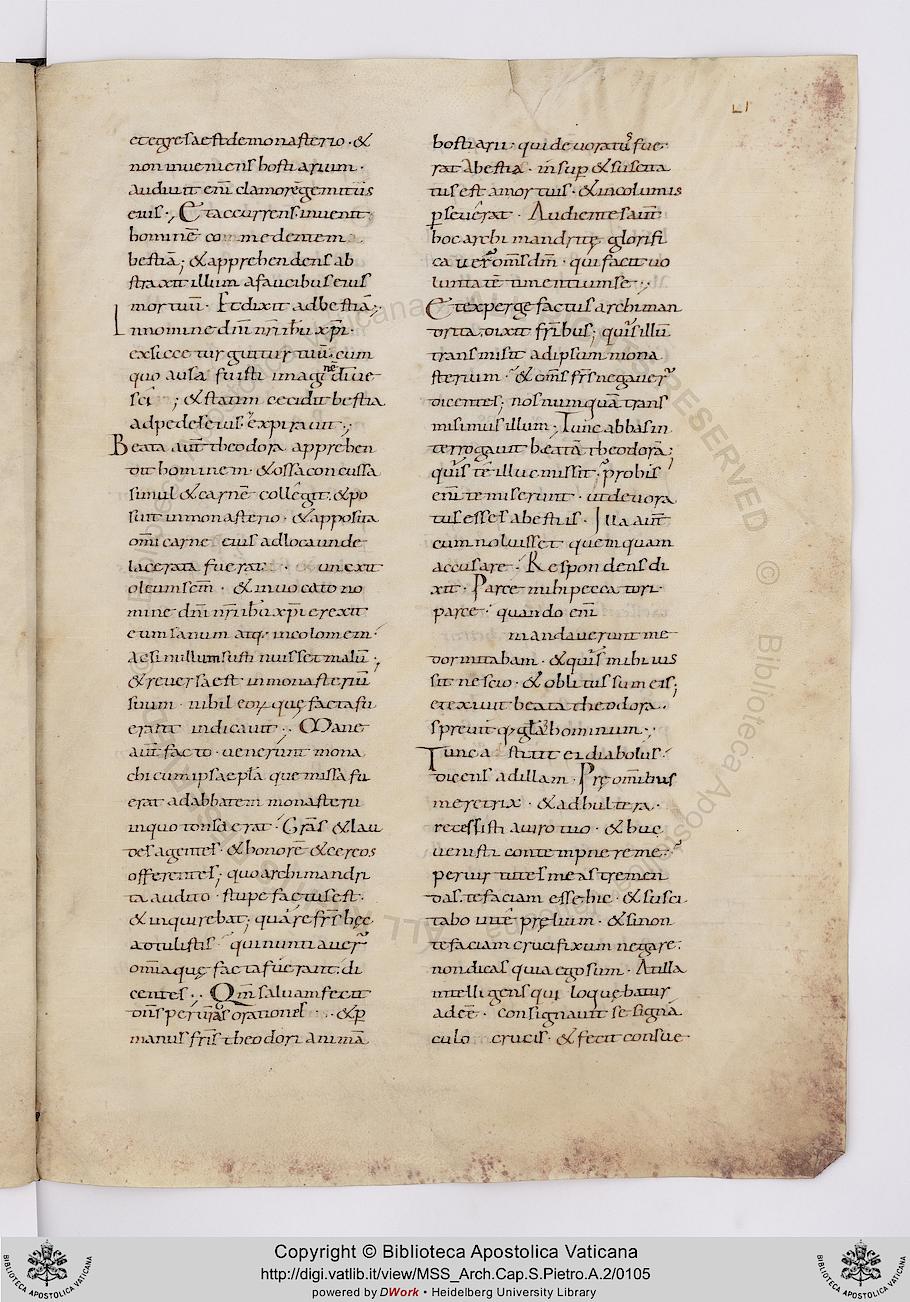 LI
et egressa est de monasterio · &
non inueniens hostiarium ·
audiuit eni clamorẽ gemitus
eius ·, Et accurrens · inuenit
hominẽ comedentem
bestiã; & apprehendens ab
straxit illum a faucibus eius
mortuũ · Et dixit ad bestiã;
In nomine dñi nr̃i ihũ xp̃i ·
exsiccetur guttur tuũ · eum
quo ausa fuisti imaginẽ di ue
sci ; & statim cecidit bestia
ad pedes eius & expirauit ·;
Beata aut̃ theodora apprehen
dit hominem · & ossa concussa
simul & carnẽ collegit · & po
suit in monasterio · & apposita
omi carne eius ad loca unde
lacerata fuerat · & unexit
oleum sem̃ · & inuocato no
mine dñi nr̃i ihũ xp̃i erexit
eum sanum atq; incolomem ·
ac si nullum sustinuisset malũ ;
& reuersa est in monasteriũ
suum · nihil eoꝝ quę facta fu
erant indicauit ·, Mane
aut̃ facto · uenerunt mona
chi cum ipsa epl̃a que missa fu
erat ad abbatem monasterii
in quo tonsa erat · Gr̃as & lau
des agentes · & honorẽ & cereos
offerentes; quo archimandri
ta audito · stupefactus est ·
& inquirebat; quare fr̃s hęc
adtulistis · qui nuntiauer̃
omia quę facta fuerant · di
centes ·, Qm̃ saluam fecit
dñs per ur̃as orationes · & p̃
manus fr̃is theodori animã
hostiarii · qui deuoratus fue
rat a bestia · insup & suscita
tus est a mortuis · & incolumis
pseuerat · Audientes aut̃
hoc archimandritę glorifi
cauer̃ oms dm̃ · qui facit uo
luntatẽ timentium se ·,
Et expergefactus archiman
drita dixit fr̃ibus; quis illũ
transmisit ad ipsum mona
sterium · & oms fr̃s negauer̃
dicentes; nos numquã trans
misimus illum; Tunc abbas in
terrogauit beatã theodorã;
quis te illuc missit · probis
eni te miserunt · ut deuora
tus esses a bestiis · Illa aut̃
cum noluisset quemquam
accusare · Respondens di
xit · Parce mihi peccatori ·
parce · quando eni
mandauerunt me
dormitabam · & quis mihi ius
sit nescio · & oblitus sum eis;
et exiuit beata theodora ·
spreuit gl̃a hominum ·,
Tunc astitit ei diabolus ·
dicens ad illam · Prę omnibus
meretrix · & adhultera ·
recessisti a uiro tuo · & huc
uenisti contempnere me ·
per uirtutes meas tremen
das · te faciam esse hic · & susci
tabo tibi pręlium · & si non
te faciam crucifixum negare ·
non dicas quia ego sum · At illa
intelligens qui loquębatur
ad eẽ · consignauit se signa
culo crucis · & fecit consue
Copyright © Biblioteca Apostolica Vaticana
http://digi.vatlib.it/view/MSS_Arch.Cap.S.Pietro.A.2/0105
powered by DWork • Heidelberg University Library